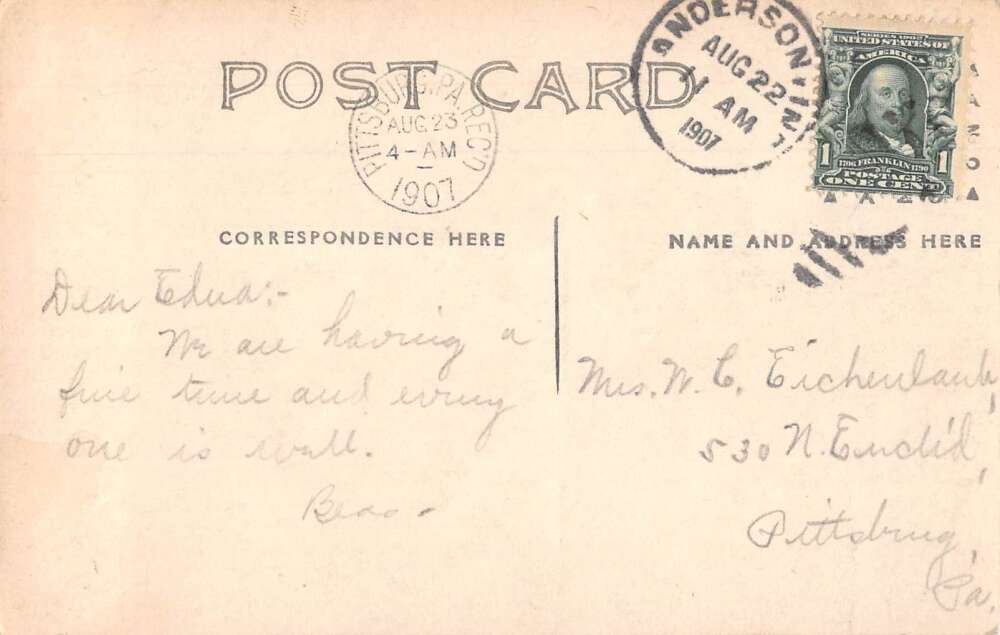 POST CARD
PITTSBURG, PA. REC'D
AUG 23
4-AM
1907
ANDERSON, IND.
AUG 22
11 AM
1907
SERIES 1902
UNITED STATES OF
AMERICA
1 1706 FRANKLIN 1790 1
POSTAGE
ONE CENT
CORRESPONDENCE HERE
NAME AND ADDRESS HERE
Dear Edna:-
We are having a
fine time and every
one is well.
Mrs. W. C. Eichenlaub,
530 N. Euclid,
Pittsburg,
Pa.